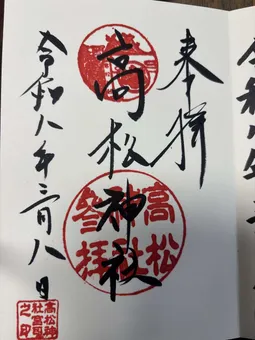 奉拝
高松神社
令和八年三月八日
高松
神社
参拝
高松神
社宮司
之印